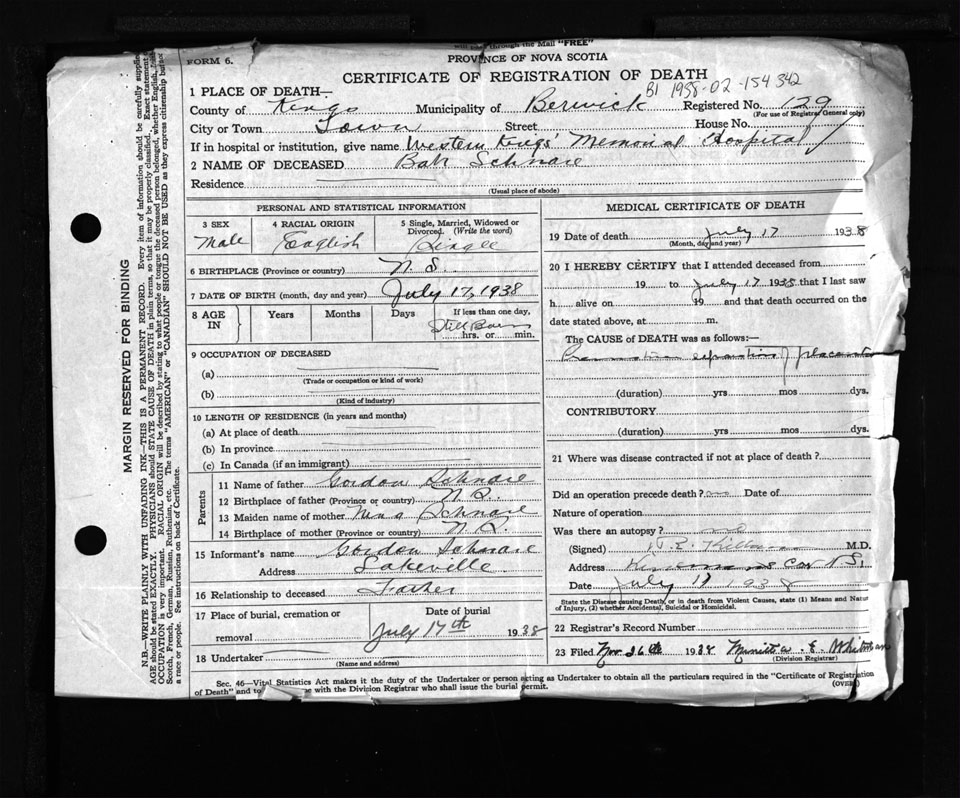 will pass through the Mail "FREE"
FORM 6.
PROVINCE OF NOVA SCOTIA
CERTIFICATE OF REGISTRATION OF DEATH
B1 1938-02-154342
1 PLACE OF DEATH—
County of Kings Municipality of Berwick Registered No. 129
(For use of Registrar General only)
City or Town Town Street House No.
If in hospital or institution, give name Western Kings' Memorial Hospital
2 NAME OF DECEASED Schnare
Residence
(Usual place of abode)
PERSONAL AND STATISTICAL INFORMATION
3 SEX 4 RACIAL ORIGIN 5 Single, Married, Widowed or Divorced. (Write the word)
Male English Single
6 BIRTHPLACE (Province or country) N.S.
7 DATE OF BIRTH (month, day and year) July 17, 1938
8 AGE IN Years Months Days If less than one day,
Still Born
hrs. or min.
9 OCCUPATION OF DECEASED
(a)
(Trade or occupation or kind of work)
(b)
(Kind of industry)
10 LENGTH OF RESIDENCE (in years and months)
(a) At place of death
(b) In province
(c) In Canada (if an immigrant)
Parents
11 Name of father Gordon Schnare
12 Birthplace of father (Province or country) N.S.
13 Maiden name of mother Schnare
14 Birthplace of mother (Province or country) N.S.
15 Informant's name Gordon Schnare
Address Lakeville
16 Relationship to deceased Father
17 Place of burial, cremation or removal Date of burial
July 17th 1938
18 Undertaker
(Name and address)
MEDICAL CERTIFICATE OF DEATH
19 Date of death July 17 1938
(Month, day and year)
20 I HEREBY CERTIFY that I attended deceased from
19 to July 17 1938 that I last saw
h alive on 19 and that death occurred on the
date stated above, at m.
The CAUSE of DEATH was as follows:—
of placenta
(duration) yrs mos dys.
CONTRIBUTORY
(duration) yrs mos dys.
21 Where was disease contracted if not at place of death?
Did an operation precede death? no Date of
Nature of operation
Was there an autopsy? no
(Signed) M.D.
Address N.S.
Date July 17 1938
State the Disease causing Death, or in death from Violent Causes, state (1) Means and Nature
of Injury, (2) whether Accidental, Suicidal or Homicidal.
22 Registrar's Record Number
23 Filed Nov 26th 1938 E. Whitman
(Division Registrar)
Sec. 46—Vital Statistics Act makes it the duty of the Undertaker or person acting as Undertaker to obtain all the particulars required in the "Certificate of Registration
of Death" and to with the Division Registrar who shall issue the burial permit.
(OVER)
MARGIN RESERVED FOR BINDING
N.B.—WRITE PLAINLY WITH UNFADING INK—THIS IS A PERMANENT RECORD. Every item of information should be carefully supplied.
AGE should be stated EXACTLY. PHYSICIANS should STATE CAUSE OF DEATH in plain terms, so that it may be properly classified. Exact statement
OCCUPATION is very important. RACIAL ORIGIN will be described by stating to what people or tongue the deceased person belonged, whether English,
Scotch, French, German, Russian, Ruthenian, etc. The terms "AMERICAN" or "CANADIAN" SHOULD NOT BE USED as they express citizenship but
a race or people. See instructions on back of Certificate.